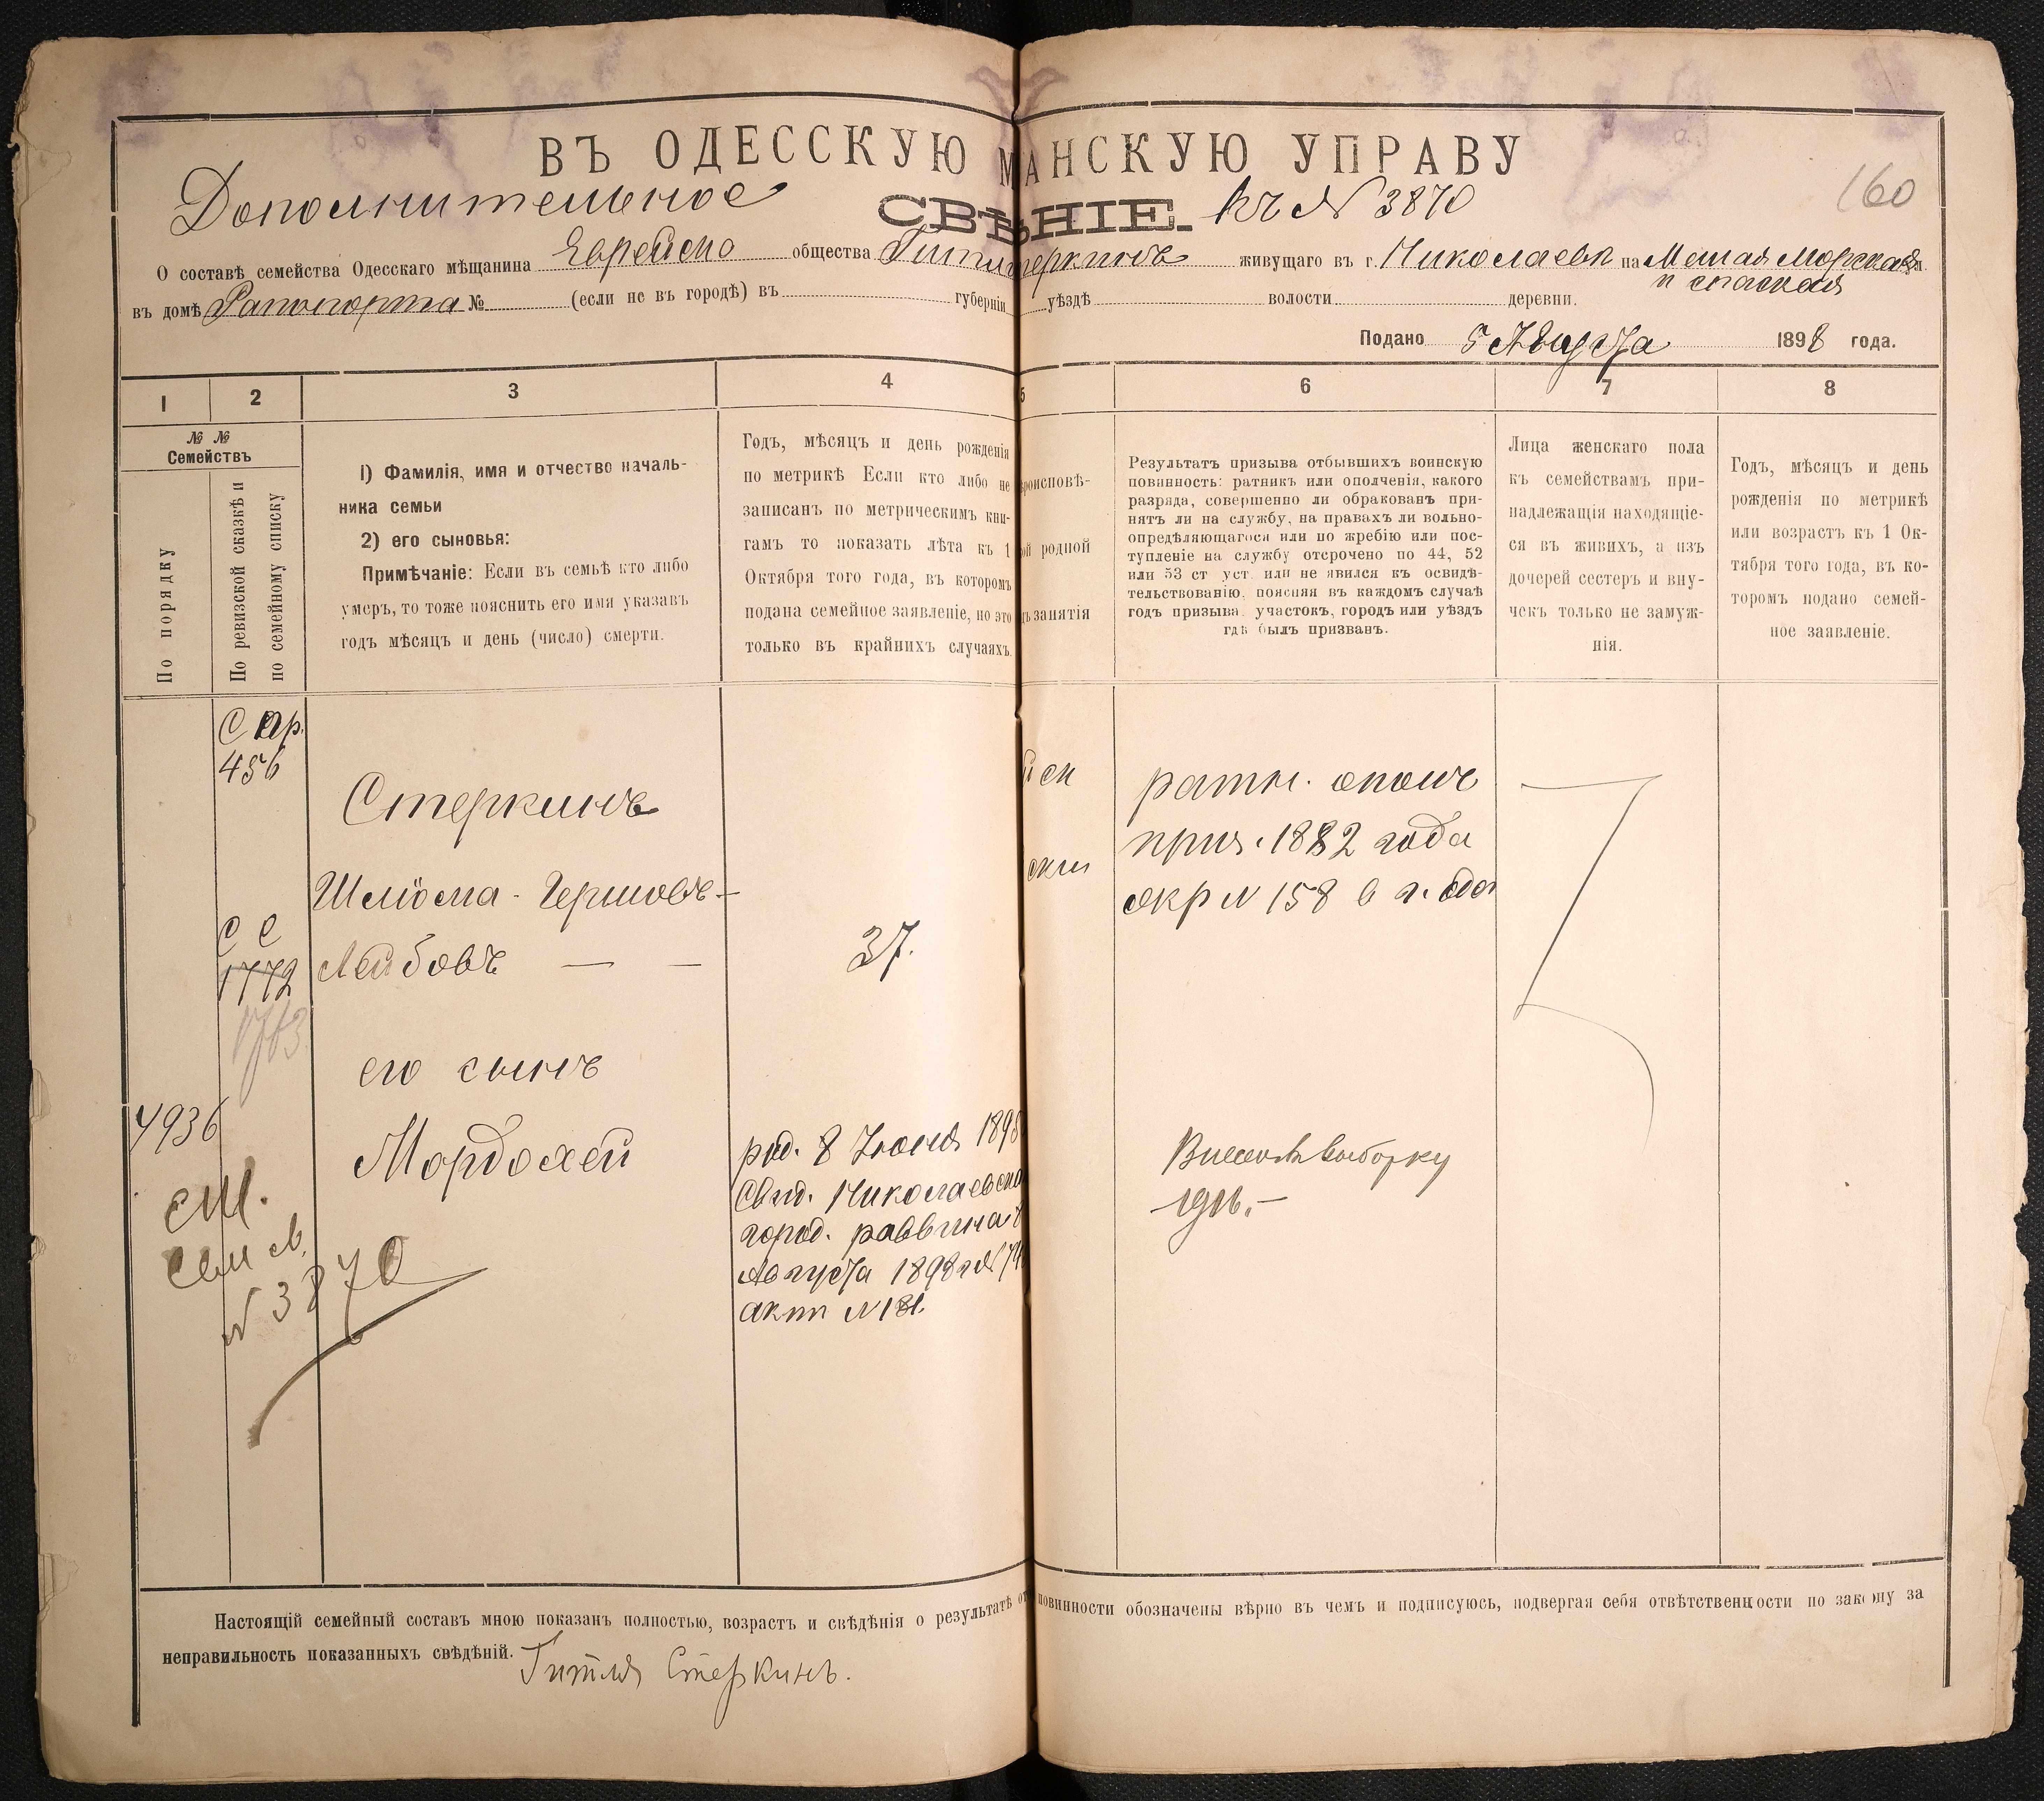 ВЪ ОДЕССКУЮ М АНСКУЮ УПРАВУ
Дополнительное СВѢ НІЕ. къ № 3870
160
О составѣ семейства Одесскаго мѣщанина Еврейско общества живущаго въ г. Николаевѣ на Малая Морская
и спаская
въ домѣ Рапопорта № (если не въ городѣ) въ губерніи уѣздѣ волости деревни.
Подано 5 Августа 1898 года.
1 2 3 4 5 6 7 8
№ №
Семействъ
По порядку
По ревизской сказкѣ и
по семейному списку
1) Фамилія, имя и отчество началь-
ника семьи
2) его сыновья:
Примѣчаніе: Если въ семьѣ кто либо
умеръ, то тоже пояснить его имя указавъ
годъ мѣсяцъ и день (число) смерти.
Годъ, мѣсяцъ и день рожденія
по метрикѣ Если кто либо не
записанъ по метрическимъ кни-
гамъ то показать лѣта къ 1
Октября того года, въ которомъ
подана семейное заявленіе, но это
только въ крайнихъ случаяхъ.
роисповѣ-
ой родной
ъ занятія
Результатъ призыва отбывшихъ воинскую
повинность: ратникъ или ополченія, какого
разряда, совершенно ли обракованъ при-
нятъ ли на службу, на правахъ ли вольно-
опредѣляющагося или по жребію или пос-
тупленіе на службу отсрочено по 44, 52
или 53 ст уст. или не явился къ освидѣ-
тельствованію, поясняя въ каждомъ случаѣ
годъ призыва, участокъ, городъ или уѣздъ
гдѣ былъ призванъ.
Лица женскаго пола
къ семействамъ при-
надлежащія находящіе-
ся въ живихъ, а изъ
дочерей сестеръ и вну-
чекъ только не замуж-
нія.
Годъ, мѣсяцъ и день
рожденія по метрикѣ
или возрастъ къ 1 Ок-
тября того года, въ ко-
торомъ подано семей-
ное заявленіе.
456
Стеркинъ
Шлёма-Гершовъ-
Лейбовъ — —
37.
С С
1772
ратн. ополч
приз. 1882 года
окр № 158 в г. Одес
его сынъ
Мордохей
4936
см.
№ 3870
род. 8 Іюня 1898
Свид. Николаевска
город. раввина
Августа 1898 г №
акт № 181.
выборку
Настоящій семейный составъ мною показанъ полностью, возрастъ и свѣдѣнія о результатѣ от повинности обозначены вѣрно въ чемъ и подписуюсь, подвергая себя отвѣтственности по закону за
неправильность показанныхъ свѣдѣній. Гитля Стеркинъ.